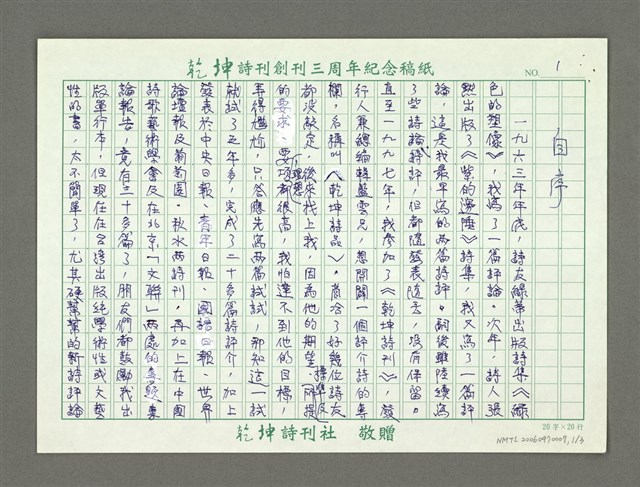 乾坤詩刊創刊三周年紀念稿紙
NO. 1
自序
一九六三年年底，詩友綠蒂出版詩集《綠
色的塑像》，我寫了一篇評論。次年，詩人張
默出版了《紫的邊陲》詩集，我又寫了一篇評
論，這是我最早寫的兩篇詩評。嗣後雖陸續寫
了些詩論、詩評，但都隨發表隨丟，沒有保留。
直至一九九七年，我參加了《乾坤詩刊》，發
行人兼總編輯藍雲兄，想開闢一個評介詩的專
欄，名稱叫《乾坤詩品》。商洽了好幾位詩友
都沒敲定，後來找上我，因為他的期望、標準及所提
的要求、要項都很高，理想我怕達不到他的目標，
弄得尷尬，只答應先寫兩篇試試，那知這一試
就試了三年多，完成了二十多篇詩評介，加上
發表於中央日報、青年日報、國語日報、世界
論壇報及葡萄園、秋水兩詩刊，再加上在中國
詩歌藝術學會及在北京「文聯」兩處的專題
論報告，竟有三十多篇了，朋友們都鼓勵我出
版單行本，但現在在台灣出版純學術性或文藝
性的書，太不簡單了，尤其硬幫幫的新詩評論
乾坤詩刊社 敬贈
20字×20行
NMTL20060970007,1/3